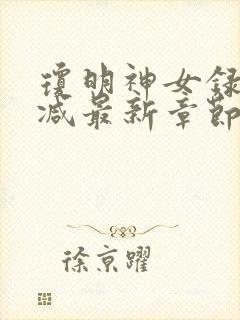 瓊明神女錄
减最新章節
徐京躍